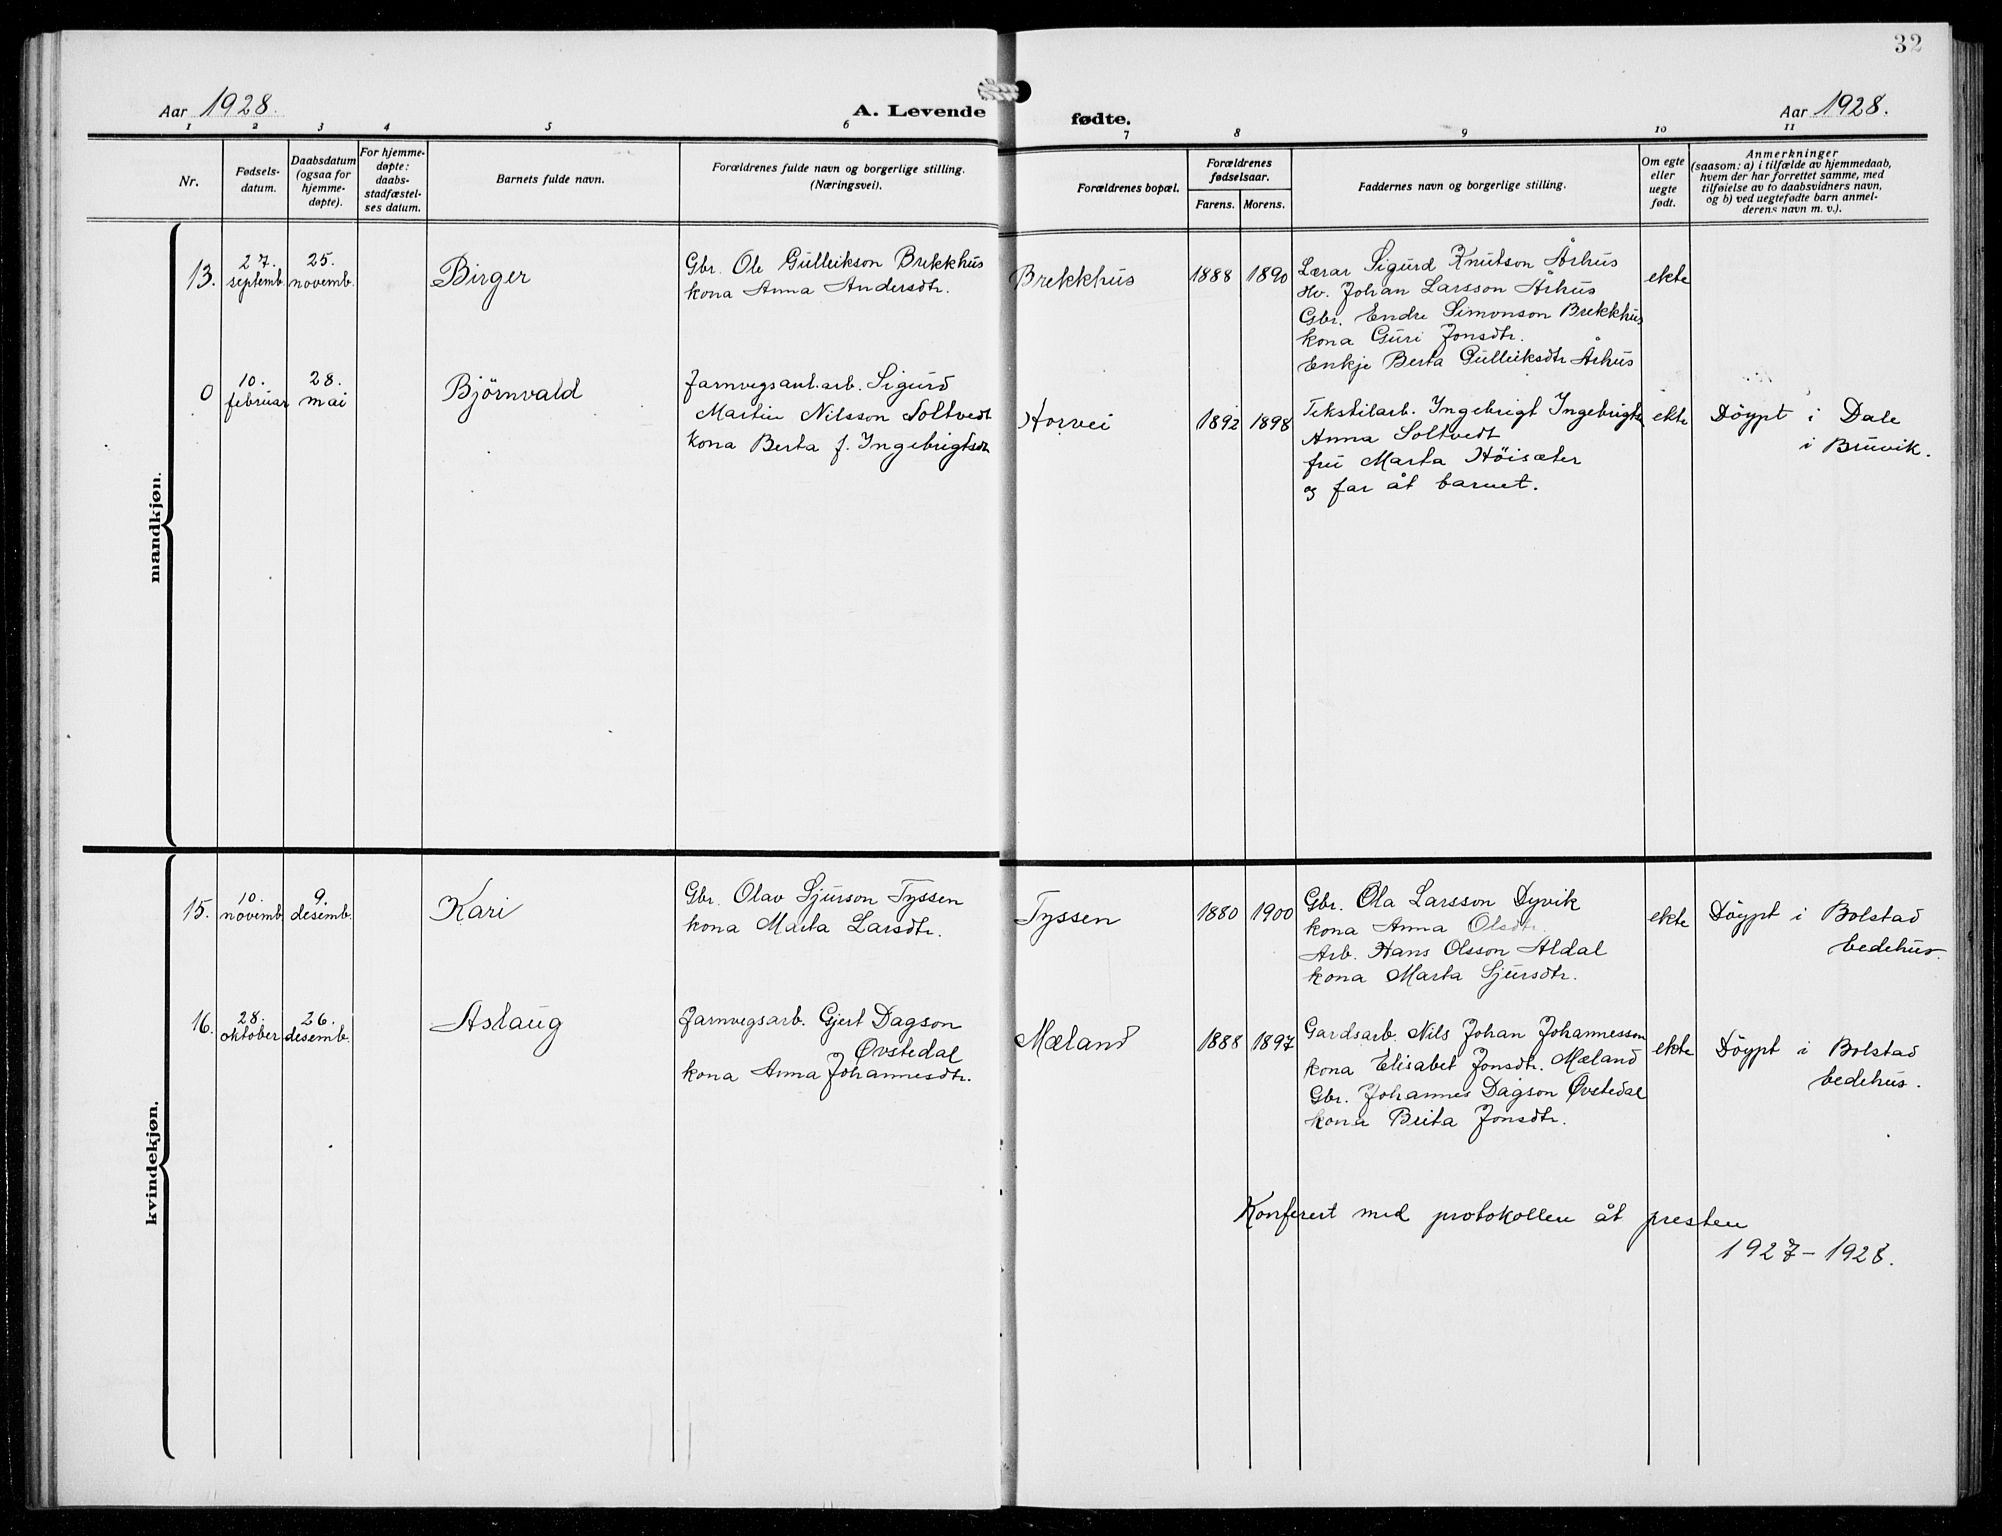 32
Aar 1928.
A. Levende fødte.
Aar 1928.
1 2 3 4 5 6 7 8 9 10 11
Nr.
Fødsels-
datum.
Daabsdatum
(ogsaa for
hjemme-
døpte).
For hjemme-
døpte:
daabs-
stadfæstel-
ses datum.
Barnets fulde navn.
Forældrenes fulde navn og borgerlige stilling.
(Næringsvei).
Forældrenes bopæl.
Forældrenes
fødselsaar.
Farens. Morens.
Faddernes navn og borgerlige stilling.
Om egte
eller
uegte
født.
Anmerkninger
(saasom: a) i tilfælde av hjemmedaab,
hvem der har forrettet samme, med
tilføielse av to daabsvidners navn,
og b) ved uegtefødte barn anmel-
derens navn m. v.).
mandkjøn.
13.
27.
septemb.
25.
novemb.
Birger
Gbr. Ole Gulleikson Brekkhus
kona Anna Andersdtr.
Brekkhus
1888 1890
Lærar Sigurd Knutson Århus
Hv. Johan Larsson Århus
Gbr. Endre Simonson Brekkhus
kona Guri Jonsdtr.
Enkje Berta Gulleiksdtr Århus
ekte
0
10.
februar
28.
mai
Björnvald
Jarnvegsanl.arb. Sigurd
Martin Nilsson Soltvedt
kona Berta f. Ingebrigtsdtr
Horvei
1892 1898
Tekstilarb. Ingebrigt Ingebrigts
Anna Soltvedt
fru Marta Höisæter
og far åt barnet.
ekte
Döypt i Dale
i Bruvik.
kvindekjøn.
15.
10.
novemb.
9.
desemb.
Kari
Gbr. Olav Sjurson Tyssen
kona Marta Larsdtr.
Tyssen
1880 1900
Gbr. Ola Larsson Dyvik
kona Anna Olsdtr.
Arb. Hans Olsson Aldal
kona Marta Sjursdtr.
ekte
Döypt i Bolstad
bedehus.
16.
28.
oktober
26.
desemb.
Aslaug
Jarnvegsarb. Gjert Dagson
Øvstedal
kona Anna Johannesdtr.
Mæland
1888 1897
Gardsarb. Nils Johan Johannesson
kona Elisabet Jonsdtr. Mæland
Gbr. Johannes Dagson Øvstedal
kona Brita Jonsdtr.
ekte
Döypt i Bolstad
bedehus.
Konferert med protokollen åt presten
1927-1928.